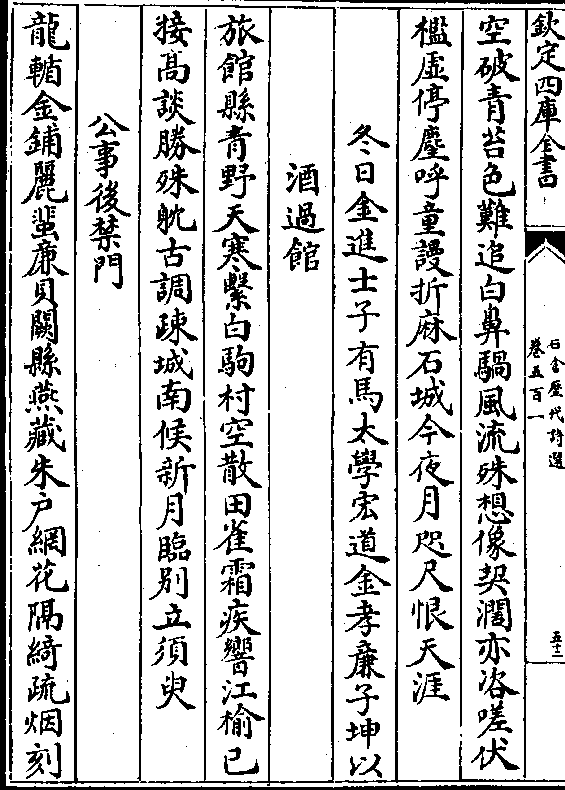 欽定四庫全書
石倉歷代詩選
卷五百一
五十二
空破青苔色難追白鼻騧風流殊想像契濶亦咨嗟伏
檻虛停麈呼童謾折麻石城今夜月咫尺恨天涯
冬日金進士子有馬太學宏道金孝廉子坤以
酒過館
旅館縣青野天寒繫白駒村空散田雀霜疾響江榆已
接高談勝殊躭古調疎城南候新月臨別立須臾
公事後禁門
龍輴金鋪麗蜚廉貝闕縣燕藏朱户網花隔綺疏烟刻